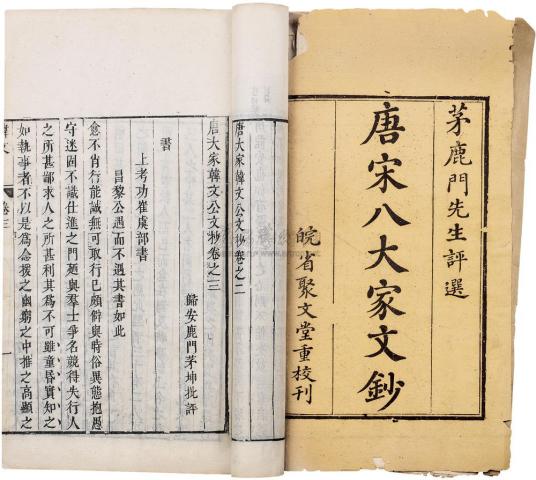 茅鹿門先生評選
唐宋八大家文鈔
皖省聚文堂重校刊
唐大家韓文公文抄卷之二
唐大家韓文公文抄卷之三
歸安鹿門茅坤批評
書
上考功崔虞部書
昌黎公遇而不遇其書如此
愈不肖行能誠無可取行已頗僻與時俗異態抱愚
守迷固不識仕進之門廼與羣士爭名競得失行人
之所甚鄙求人之所甚利其為不可雖童昏實知之
如執事者不以是為念援之幽窮之中推之高顯之
韓文
卷三